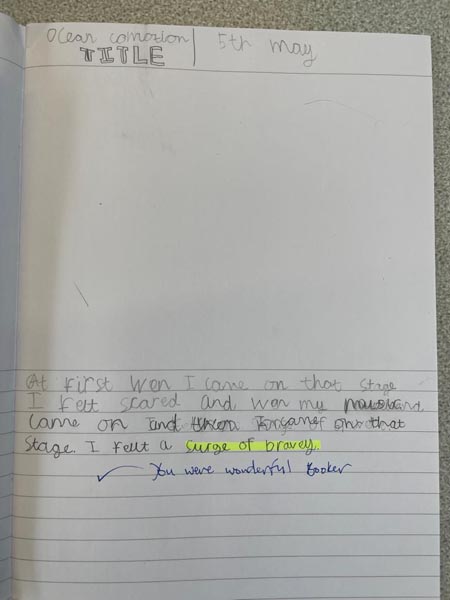 Ocean comotion 5th may
TITLE
At first wen I came on that stage
I felt scared and wen my
came on and then I came on that
stage. I fellt a surge of bravey.
You were wonderful